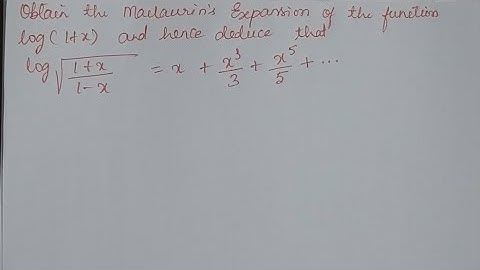 Obtain the Maclaurin's Expansion of the function
log(1+x) and hence deduce that
log √((1+x)/(1-x)) = x + x³/3 + x⁵/5 + ...